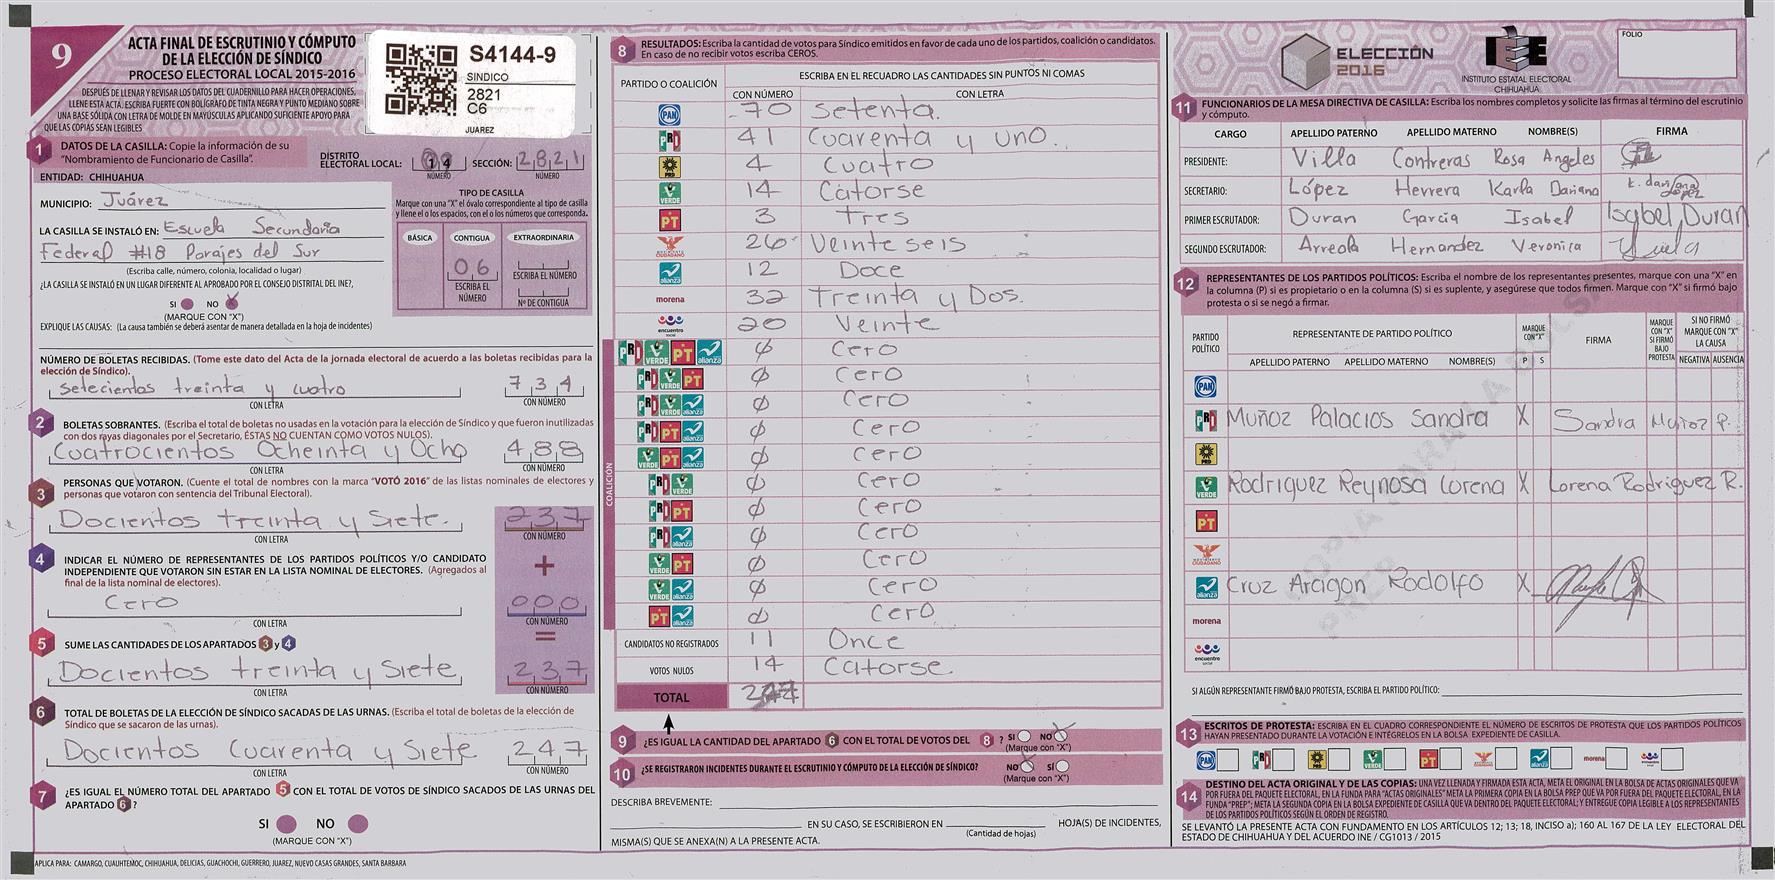 9
ACTA FINAL DE ESCRUTINIO Y CÓMPUTO
DE LA ELECCIÓN DE SÍNDICO
PROCESO ELECTORAL LOCAL 2015-2016
DESPUÉS DE LLENAR Y REVISAR LOS DATOS DEL CUADERNILLO PARA HACER OPERACIONES,
LLENE ESTA ACTA. ESCRIBA FUERTE CON BOLÍGRAFO DE TINTA NEGRA Y PUNTO MEDIANO SOBRE
UNA BASE SÓLIDA CON LETRA DE MOLDE EN MAYÚSCULAS APLICANDO SUFICIENTE APOYO PARA
QUE LAS COPIAS SEAN LEGIBLES
S4144-9
SINDICO
2821
C6
JUAREZ
1 DATOS DE LA CASILLA: Copie la información de su
"Nombramiento de Funcionario de Casilla".
DISTRITO
ELECTORAL LOCAL: SECCIÓN: 2821
NÚMERO NÚMERO
ENTIDAD: CHIHUAHUA
MUNICIPIO: Juárez
LA CASILLA SE INSTALÓ EN: Escuela Secundaria
Federal #18 Parajes del Sur
(Escriba calle, número, colonia, localidad o lugar)
¿LA CASILLA SE INSTALÓ EN UN LUGAR DIFERENTE AL APROBADO POR EL CONSEJO DISTRITAL DEL INE?,
SI NO X
(MARQUE CON "X")
EXPLIQUE LAS CAUSAS: (La causa también se deberá asentar de manera detallada en la hoja de incidentes)
TIPO DE CASILLA
Marque con una "X" el óvalo correspondiente al tipo de casilla
y llene el o los espacios, con el o los números que corresponda.
BÁSICA CONTIGUA EXTRAORDINARIA
06
ESCRIBA EL NÚMERO
ESCRIBA EL
NÚMERO
Nº DE CONTIGUA
NÚMERO DE BOLETAS RECIBIDAS. (Tome este dato del Acta de la jornada electoral de acuerdo a las boletas recibidas para la
elección de Síndico).
setecientos treinta y cuatro 734
CON LETRA CON NÚMERO
2 BOLETAS SOBRANTES. (Escriba el total de boletas no usadas en la votación para la elección de Síndico y que fueron inutilizadas
con dos rayas diagonales por el Secretario, ÉSTAS NO CUENTAN COMO VOTOS NULOS).
Cuatrocientos Ocheinta y Ocho 488
CON LETRA CON NÚMERO
3 PERSONAS QUE VOTARON. (Cuente el total de nombres con la marca "VOTÓ 2016" de las listas nominales de electores y
personas que votaron con sentencia del Tribunal Electoral).
Docientos treinta y Siete. 237
CON LETRA CON NÚMERO
4 INDICAR EL NÚMERO DE REPRESENTANTES DE LOS PARTIDOS POLÍTICOS Y/O CANDIDATO
INDEPENDIENTE QUE VOTARON SIN ESTAR EN LA LISTA NOMINAL DE ELECTORES. (Agregados al
final de la lista nominal de electores).
+
Cero 000
CON LETRA CON NÚMERO
5 SUME LAS CANTIDADES DE LOS APARTADOS 3 y 4
=
Docientos treinta y Siete 237
CON LETRA CON NÚMERO
6 TOTAL DE BOLETAS DE LA ELECCIÓN DE SÍNDICO SACADAS DE LAS URNAS. (Escriba el total de boletas de la elección de
Síndico que se sacaron de las urnas).
Docientos Cuarenta y Siete 247
CON LETRA CON NÚMERO
7 ¿ES IGUAL EL NÚMERO TOTAL DEL APARTADO 5 CON EL TOTAL DE VOTOS DE SÍNDICO SACADOS DE LAS URNAS DEL
APARTADO 6?
SI NO
(MARQUE CON "X")
APLICA PARA: CAMARGO, CUAUHTEMOC, CHIHUAHUA, DELICIAS, GUACHOCHI, GUERRERO, JUAREZ, NUEVO CASAS GRANDES, SANTA BARBARA
8 RESULTADOS: Escriba la cantidad de votos para Síndico emitidos en favor de cada uno de los partidos, coalición o candidatos.
En caso de no recibir votos escriba CEROS.
PARTIDO O COALICIÓN ESCRIBA EN EL RECUADRO LAS CANTIDADES SIN PUNTOS NI COMAS
CON NÚMERO CON LETRA
PAN 70 Setenta.
PRI 41 Cuarenta y uno.
PRD 4 Cuatro
VERDE 14 Catorse
PT 3 tres
MOVIMIENTO CIUDADANO 26 Veinte seis
alianza 12 Doce
morena 32 Treinta y Dos.
encuentro social 20 Veinte
COALICIÓN
PRI VERDE PT alianza Ø Cero
PRI VERDE PT Ø Cero
PRI VERDE alianza Ø Cero
PRI PT alianza Ø Cero
VERDE PT alianza Ø Cero
PRI VERDE Ø Cero
PRI PT Ø Cero
PRI alianza Ø Cero
VERDE PT Ø Cero
VERDE alianza Ø Cero
PT alianza Ø Cero
CANDIDATOS NO REGISTRADOS 11 Once
VOTOS NULOS 14 Catorse.
TOTAL
9 ¿ES IGUAL LA CANTIDAD DEL APARTADO 6 CON EL TOTAL DE VOTOS DEL 8? SI NO X
(Marque con "X")
10 ¿SE REGISTRARON INCIDENTES DURANTE EL ESCRUTINIO Y CÓMPUTO DE LA ELECCIÓN DE SÍNDICO? NO X SÍ
(Marque con "X")
DESCRIBA BREVEMENTE:
EN SU CASO, SE ESCRIBIERON EN HOJA(S) DE INCIDENTES,
(Cantidad de hojas)
MISMA(S) QUE SE ANEXA(N) A LA PRESENTE ACTA.
ELECCIÓN
2016
IEE
INSTITUTO ESTATAL ELECTORAL
CHIHUAHUA
FOLIO
11 FUNCIONARIOS DE LA MESA DIRECTIVA DE CASILLA: Escriba los nombres completos y solicite las firmas al término del escrutinio
y cómputo.
CARGO APELLIDO PATERNO APELLIDO MATERNO NOMBRE(S) FIRMA
PRESIDENTE: Villa Contreras Rosa Angeles
SECRETARIO: López Herrera Karla Dariana
PRIMER ESCRUTADOR: Duran Garcia Isabel Isabel Duran
SEGUNDO ESCRUTADOR: Arreola Hernandez Veronica
12 REPRESENTANTES DE LOS PARTIDOS POLÍTICOS: Escriba el nombre de los representantes presentes, marque con una "X" en
la columna (P) si es propietario o en la columna (S) si es suplente, y asegúrese que todos firmen. Marque con "X" si firmó bajo
protesta o si se negó a firmar.
PARTIDO POLÍTICO REPRESENTANTE DE PARTIDO POLÍTICO MARQUE CON "X" FIRMA MARQUE CON "X" SI FIRMÓ BAJO PROTESTA SI NO FIRMÓ MARQUE CON "X" LA CAUSA
APELLIDO PATERNO APELLIDO MATERNO NOMBRE(S) P S NEGATIVA AUSENCIA
PAN
PRI Muñoz Palacios Sandra X Sandra Muñoz P.
PRD
VERDE Rodriguez Reynosa Lorena X Lorena Rodriguez R.
PT
MOVIMIENTO CIUDADANO
alianza Cruz Aragon Rodolfo X
morena
encuentro social
SI ALGÚN REPRESENTANTE FIRMÓ BAJO PROTESTA, ESCRIBA EL PARTIDO POLÍTICO:
13 ESCRITOS DE PROTESTA: ESCRIBA EN EL CUADRO CORRESPONDIENTE EL NÚMERO DE ESCRITOS DE PROTESTA QUE LOS PARTIDOS POLÍTICOS
HAYAN PRESENTADO DURANTE LA VOTACIÓN E INTÉGRELOS EN LA BOLSA EXPEDIENTE DE CASILLA.
PAN PRI PRD VERDE PT alianza morena encuentro social
14 DESTINO DEL ACTA ORIGINAL Y DE LAS COPIAS: UNA VEZ LLENADA Y FIRMADA ESTA ACTA, META EL ORIGINAL EN LA BOLSA DE ACTAS ORIGINALES QUE VA
POR FUERA DEL PAQUETE ELECTORAL, EN LA FUNDA PARA "ACTAS ORIGINALES" META LA PRIMERA COPIA EN LA BOLSA PREP QUE VA POR FUERA DEL PAQUETE ELECTORAL, EN LA
FUNDA "PREP"; META LA SEGUNDA COPIA EN LA BOLSA EXPEDIENTE DE CASILLA QUE VA DENTRO DEL PAQUETE ELECTORAL; Y ENTREGUE COPIA LEGIBLE A LOS REPRESENTANTES
DE LOS PARTIDOS POLÍTICOS SEGÚN EL ORDEN DE REGISTRO.
SE LEVANTÓ LA PRESENTE ACTA CON FUNDAMENTO EN LOS ARTÍCULOS 12; 13; 18, INCISO a); 160 AL 167 DE LA LEY ELECTORAL DEL
ESTADO DE CHIHUAHUA Y DEL ACUERDO INE / CG1013 / 2015